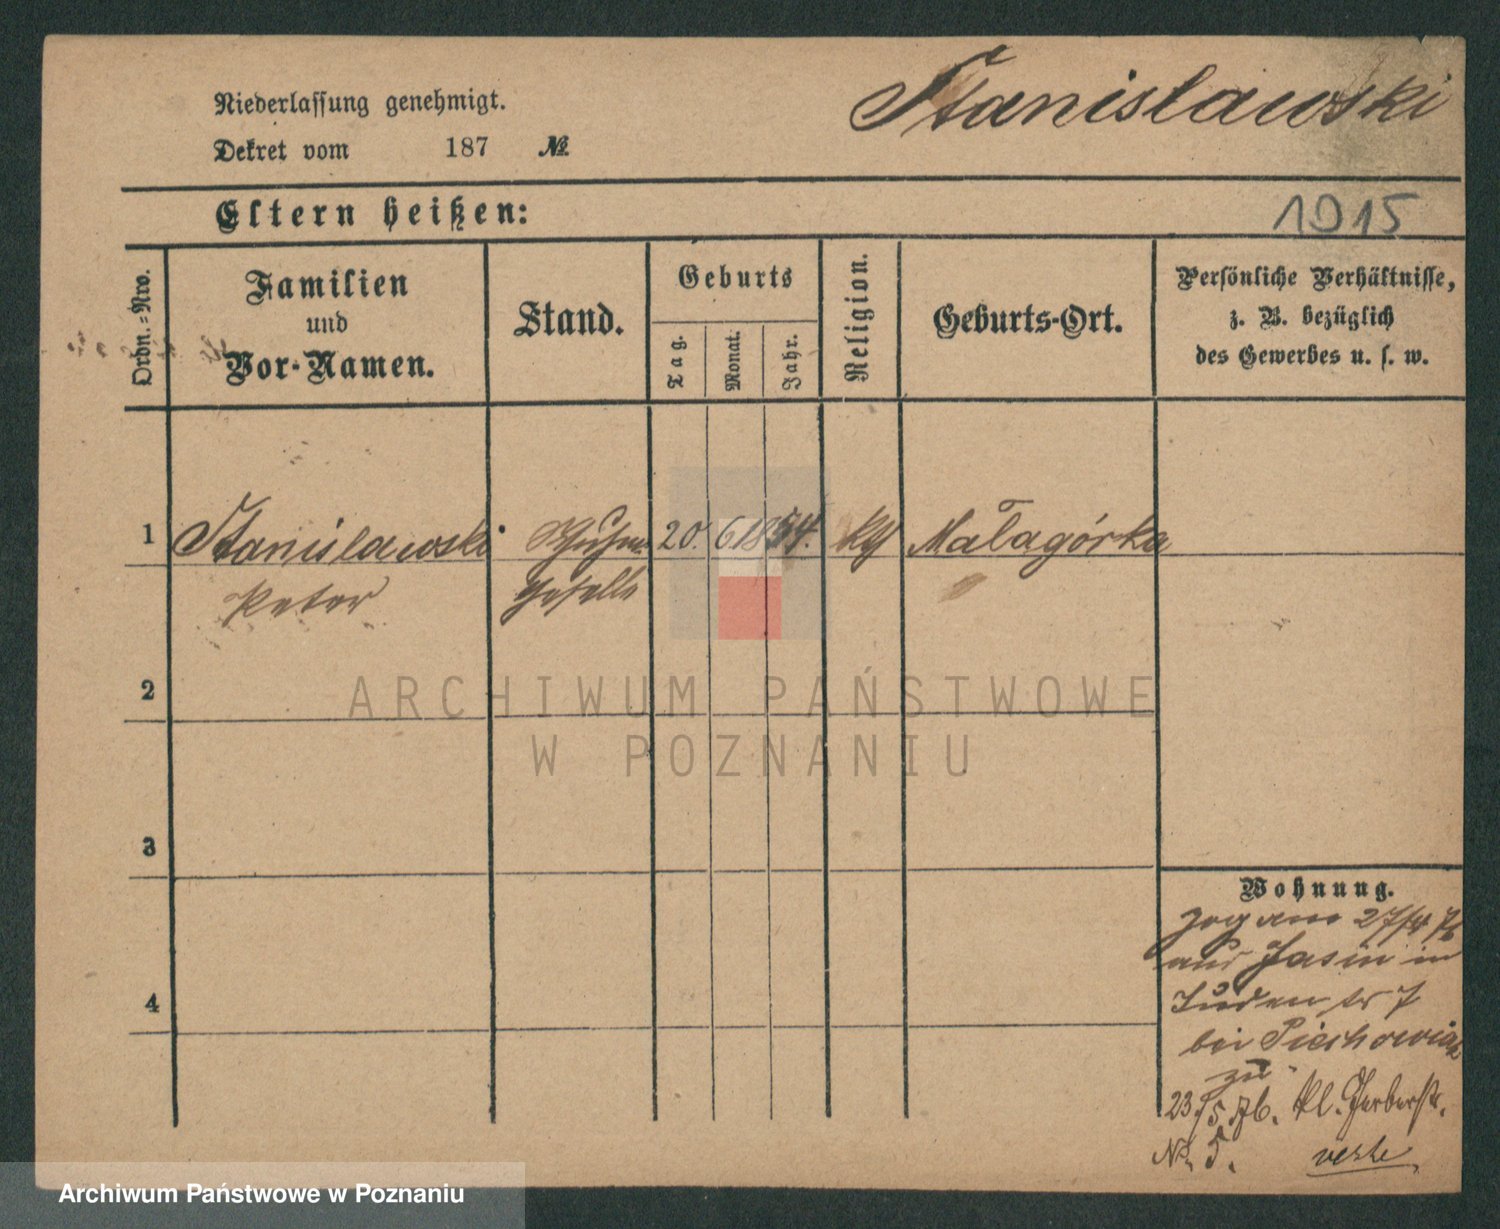 Stanislawski
Niederlassung genehmigt.
Dekret vom 187 №
Eltern heißen:
1915
Ordn.-Nro.
Familien
und
Vor-Namen.
Stand.
Geburts
Tag.
Monat.
Jahr.
Religion.
Geburts-Ort.
Persönliche Verhältnisse,
z. B. bezüglich
des Gewerbes u. s. w.
1 Stanislawski Schuhm. 20. 6 1854. kth Małagórka
Peter Geselle
2
ARCHIWUM PAŃSTWOWE
W POZNANIU
3
Wohnung.
Zog am 27/4 76
aus Jasin in
Juden str 7
bei Piechowiak
zu
4
23/5 76. Kl. Gerberstr.
No. 5.
Archiwum Państwowe w Poznaniu